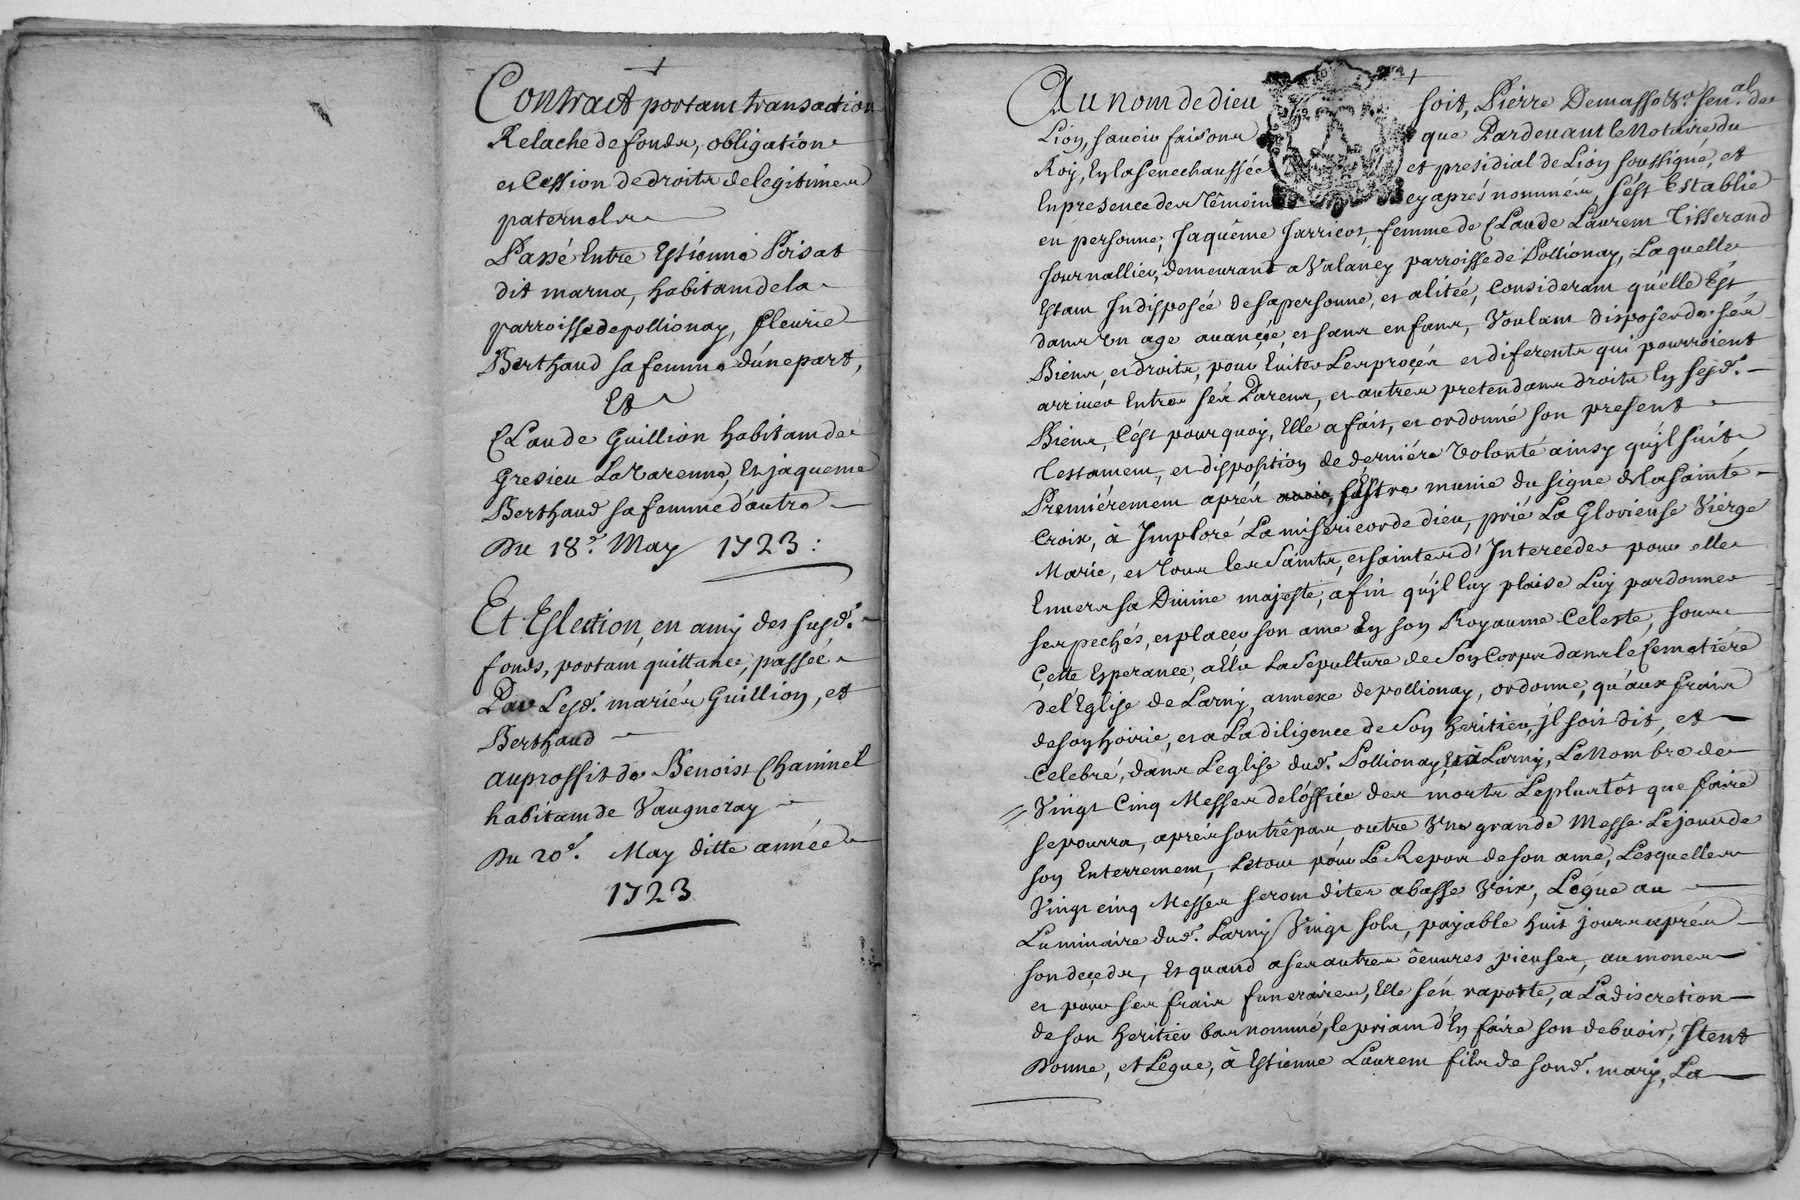 Contract portant transaction
Relache de fonds, obligation
et Cession de droits de legitimes
paternels
Passé Entre Estienne Poisat
dit marna, habitant de la
parroisse de pollionay, fleurie
Berthaud sa femme d'une part,
Et
Claude Guillion habitant de
Gresieu La Varenne, Et jaqueme
Berthaud sa femme d'autre
Du 18e. May 1723:
Et Eslection, en amy des susd.
fonds, portant quittance, passée
Par Lesd. mariés Guillion, et
Berthaud
au proffit de Benoist Chaninel
habitant de Vaugneray
Du 20e. May ditte année
1723
Au nom de dieu soit, Pierre Demasso
Lion, sçavoir faisons que Pardevant le Notaire du
Roy, En la senechaussée et presidial de Lion soussigné, et
En presence des Témoins cy aprés nommés, s'ést Establie
en personne, Jaquême Jarricot, femme de Claude Laurent Tisserand
Journallier, demeurant a Valancy parroisse de Pollionay, Laquelle
Estant Indisposée de sa personne, et alitée, Considerant qu'elle Est
dans Un age avançée, et sans enfans, Voulant disposer de sés
Biens, et droits, pour Eviter Les proçés et diferents qui pourroient
arriver Entre sés Parens, et autres pretendans droits En sesd.
Biens, C'ést pourquoy, Elle a fait, et ordonné son present
Testament, et disposition de derniére Volonté ainsy qu'jl suit
Premiérement aprés avoir s'Éstre munie du signe de la sainte
Croix, à Imploré La miséricorde dieu, prié La Glorieuse Viérge
Marie, et Tous les Saints, et saintes d'Interceder pour elle
Envers sa Divine majesté, afin qu'jl luy plaise Luy pardonner
ses pechés, et placer son ame En son Royaume Celeste, sous
Cette Esperance, a Elu La Sepulture de Son Corps dans le Cemetiére
de l'Eglise de Larny, annexe de pollionay, ordonne, qu'aux frais
de son hoirie, et a La diligence de Son heritier, jl soit dit, et
Celebré, dans L'eglise dud. Pollionay, Et à Larny, Le Nombre de
Vingt Cinq Messes de l'office des morts Le plustôt que faire
se pourra, aprés son trépas, outre Une grande Messe Le jour de
son Enterrement, Le tout pour Le Repos de son ame, Lesquelles
Vingt cinq Messes seront dites a basse Voix, Légue au
Luminaire dud. Larny Vingt sols, payable huit jours aprés
son deceds, Et quand a ses autres oeuvres pieuses, aumones
et pour ses frais funeraires, Elle s'én raporte, a La discretion
de son heritier bas nommé, le priant d'En faire son debvoir, Item
Donne, et Légue, à Estienne Laurent fils de sond. mary, La